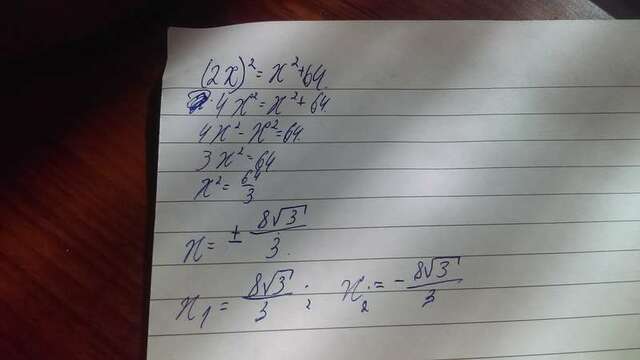 (2x)² = x² + 64.
4x² = x² + 64
4x² - x² = 64
3x² = 64
x² = 64/3
x = ± 8√3/3.
x₁ = 8√3/3; x₂ = - 8√3/3